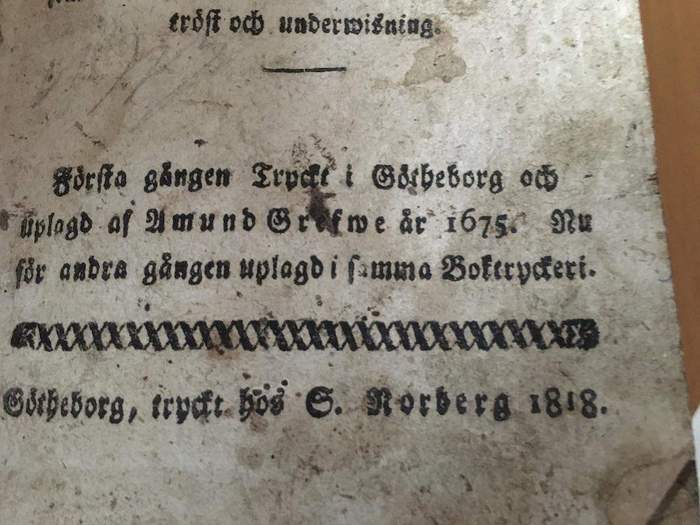 tröst och underwisning.
Första gången Tryckt i Götheborg och
uplagd af Amund Grefwe år 1675. Nu
för andra gången uplagd i samma Boktryckeri.
Götheborg, tryckt hos S. Norberg 1818.